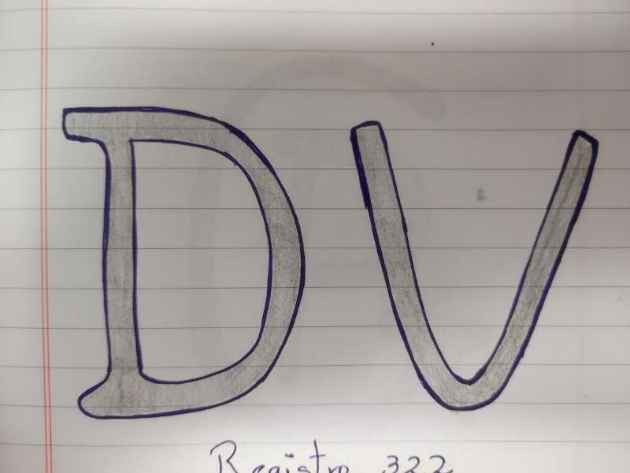 DV
Registro 322